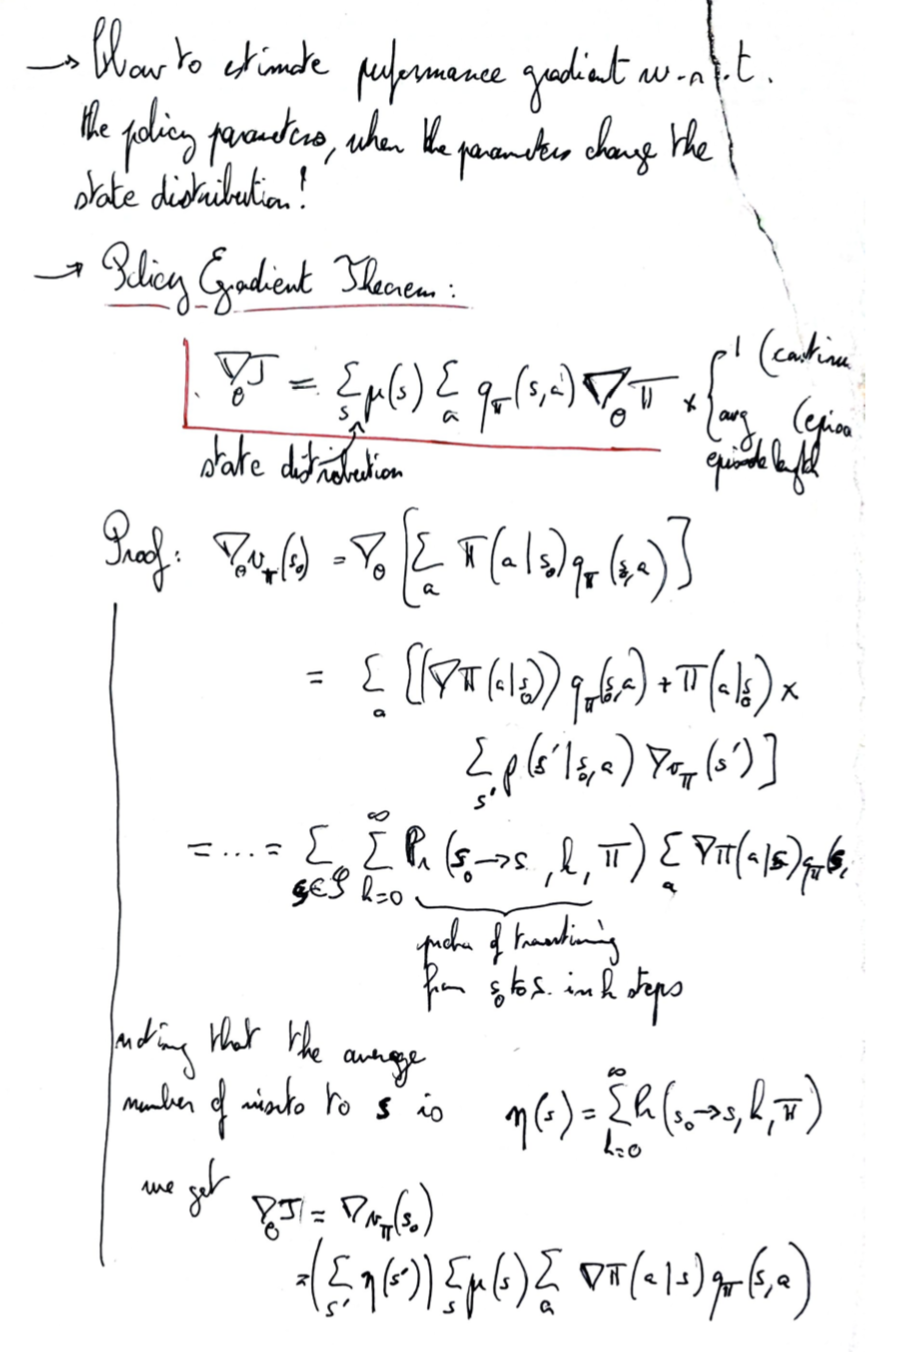 → How to estimate performance gradient w.r.t.
the policy parameters, when the parameters change the
state distribution!
→ Policy Gradient Theorem:
∇_θ J = Σ_s μ(s) Σ_a q_π(s,a) ∇_θ π × { 1 (continu
avg (episo
episode length
state distribution
Proof: ∇_θ v_π(s₀) = ∇_θ [Σ_a π(a|s₀) q_π(s₀,a)]
= Σ_a [(∇π(a|s₀)) q_π(s₀,a) + π(a|s₀) ×
Σ_s' p(s'|s₀,a) ∇v_π(s')]
= ... = Σ_{s∈𝒮} Σ_{k=0}^∞ Pr(s₀→s, k, π) Σ_a ∇π(a|s) q_π(s,
proba of transitioning
from s₀ to s in k steps
noting that the average
number of visits to s is η(s) = Σ_{k=0}^∞ Pr(s₀→s, k, π)
we get
∇_θ J = ∇v_π(s₀)
= (Σ_s' η(s')) Σ_s μ(s) Σ_a ∇π(a|s) q_π(s,a)